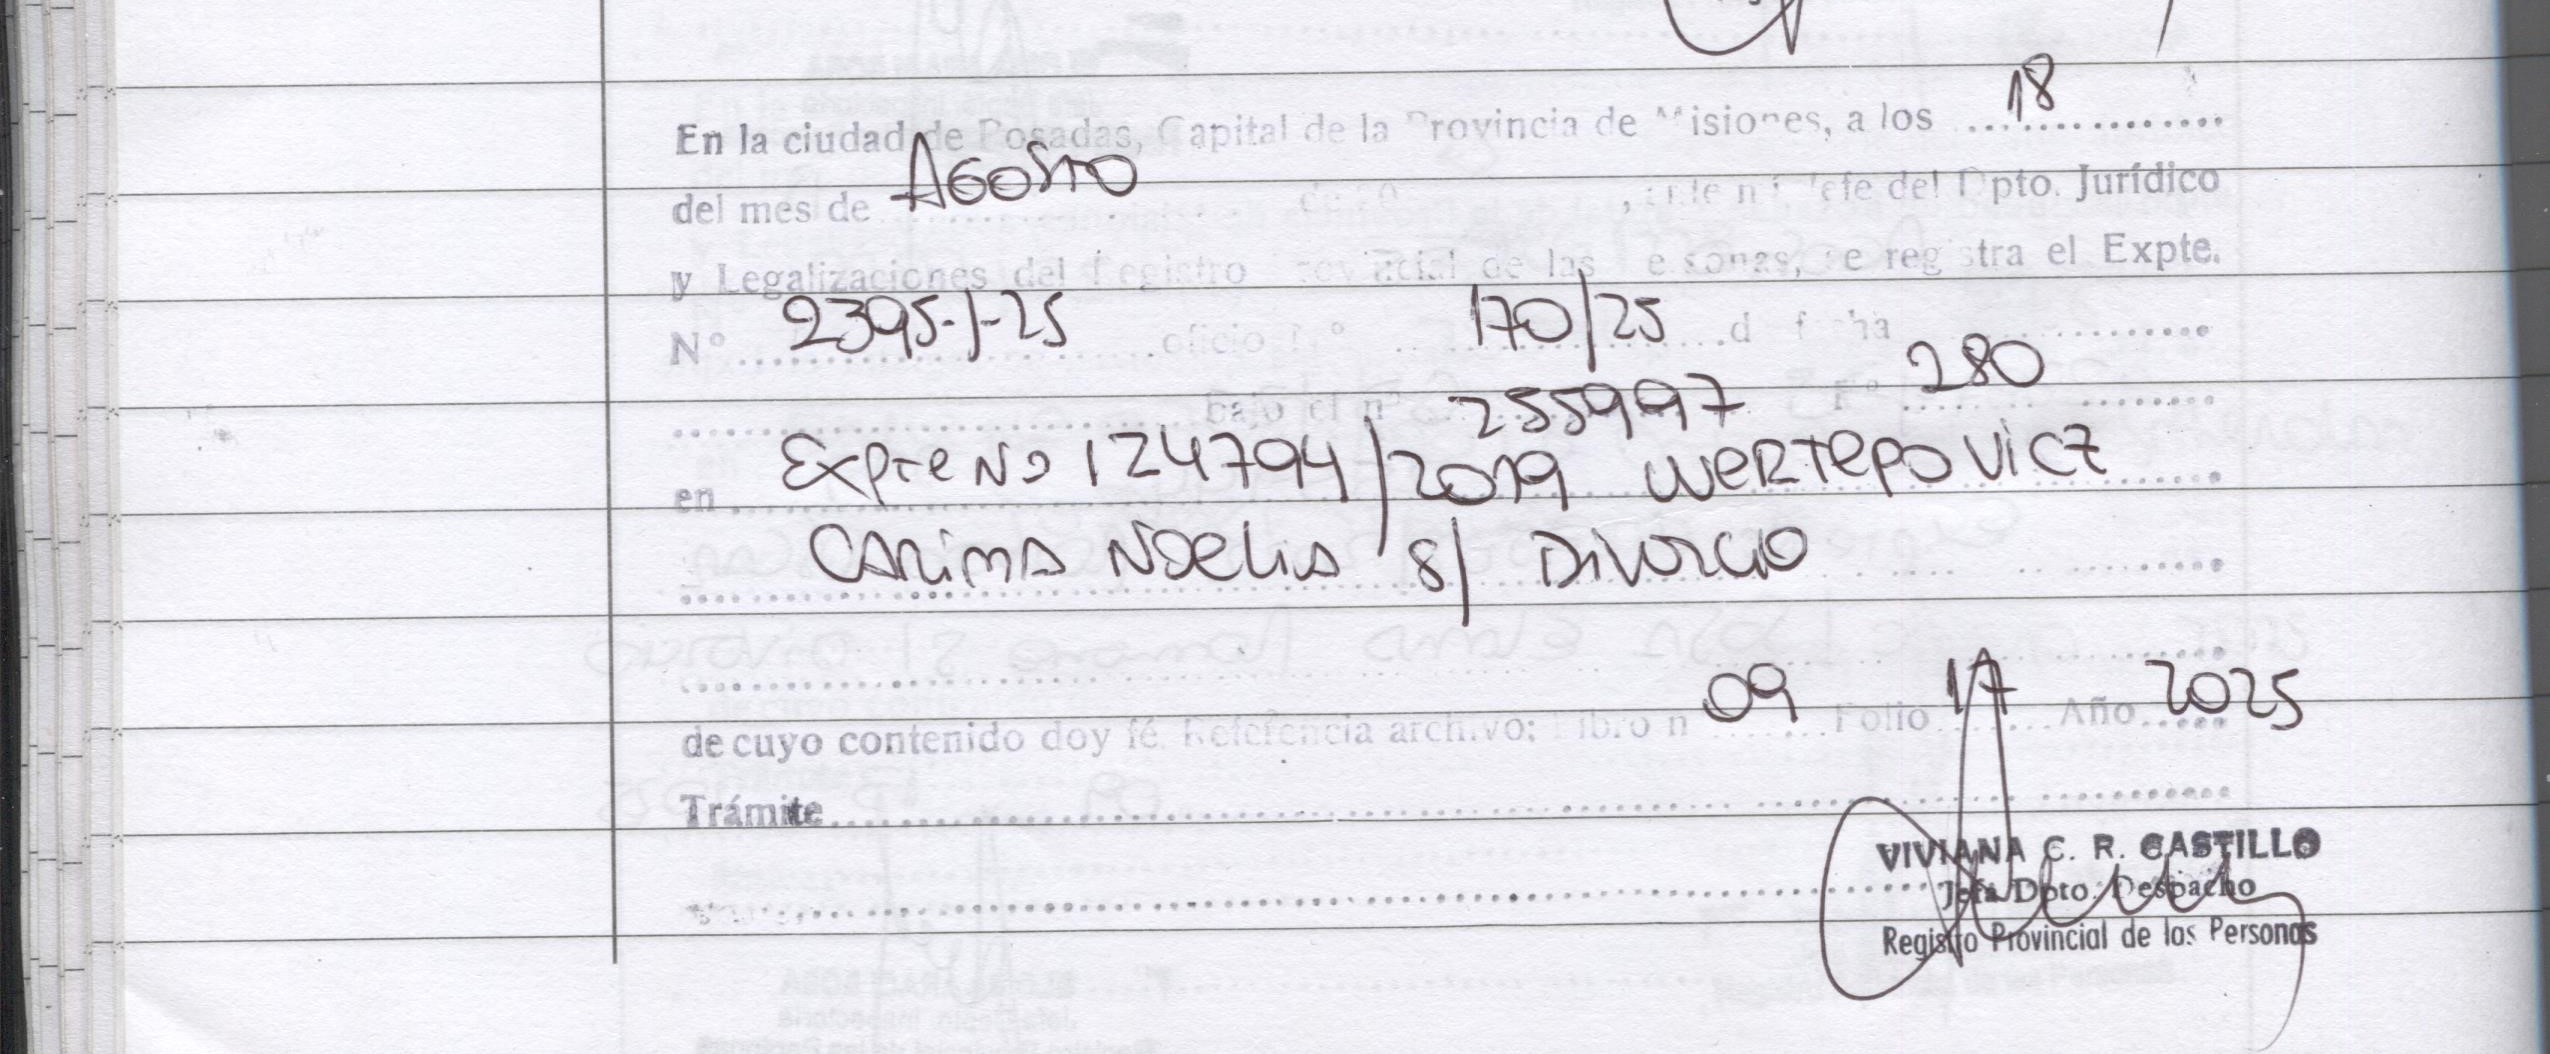 En la ciudad de Posadas, Capital de la Provincia de Misiones, a los 18
del mes de AGOSTO de 20 , ante mi Jefe del Dpto. Jurídico
y Legalizaciones del Registro Provincial de las Personas, se registra el Expte.
Nº 2395-J-25 oficio Nº 170/25 de fecha
bajo el nº 255997 Fº 280
en Expte No 124794/2019 WERTEPOVICZ
CARINA NOELIA S/ DIVORCIO
de cuyo contenido doy fé. Referencia archivo; Libro n 09 Folio 17 Año 2025
Trámite
VIVIANA C. R. CASTILLO
Jefa Dpto. Despacho
Registro Provincial de las Personas